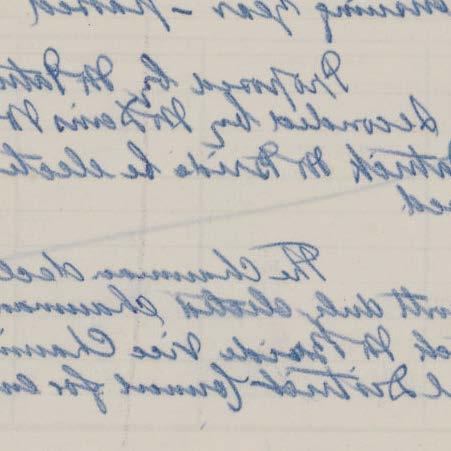 ensuing year - passed
Proposed by Mr Patri
Seconded by Mr Denis Mc
atrick McBride be electe
ed
The Chairman decl
orth duly elected Chairman
ck McBride Vice Chairm
l District Council for en